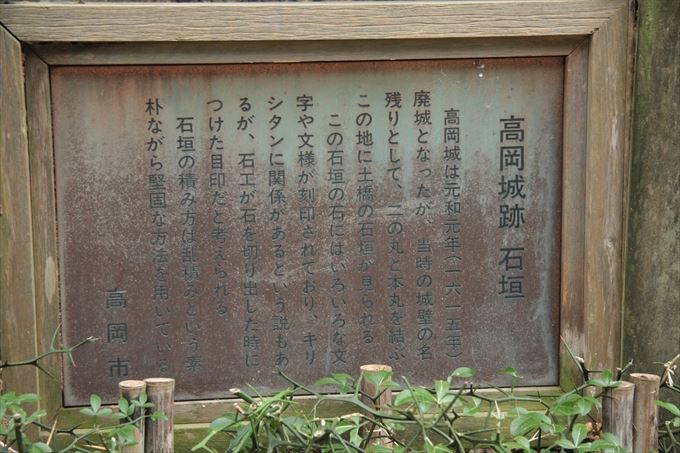 高岡城跡 石垣
高岡城は元和元年(一六一五年)
廃城となったが、当時の城壁の名
残りとして、二の丸と本丸を結ぶ
この地に土橋の石垣が見られる
この石垣の石にはいろいろな文
字や文様が刻印されており、キリ
シタンに関係があるという説もあ
るが、石工が石を切り出した時に
つけた目印だと考えられる
石垣の積み方は乱積みという素
朴ながら堅固な方法を用いている
高岡市